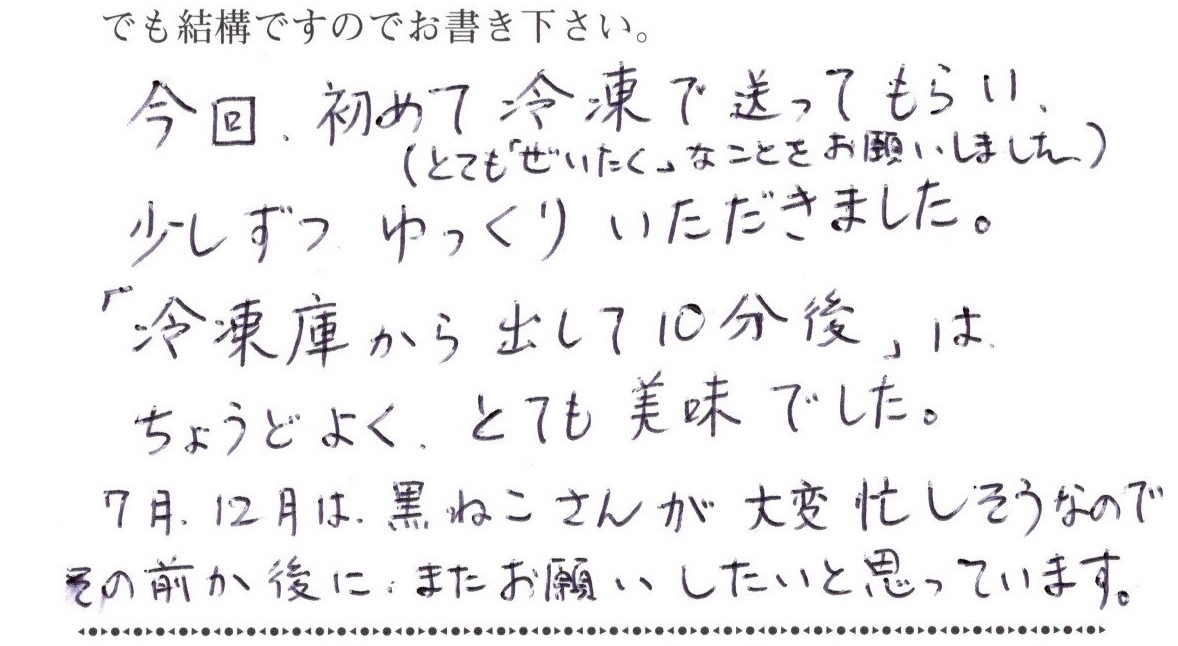 でも結構ですのでお書き下さい。
今回、初めて冷凍で送ってもらい、
(とても「ぜいたく」なことをお願いしました。)
少しずつゆっくりいただきました。
「冷凍庫から出して10分後」は
ちょうどよく、とても美味でした。
7月、12月は、黒ねこさんが大変忙しそうなので
その前か後に、またお願いしたいと思っています。